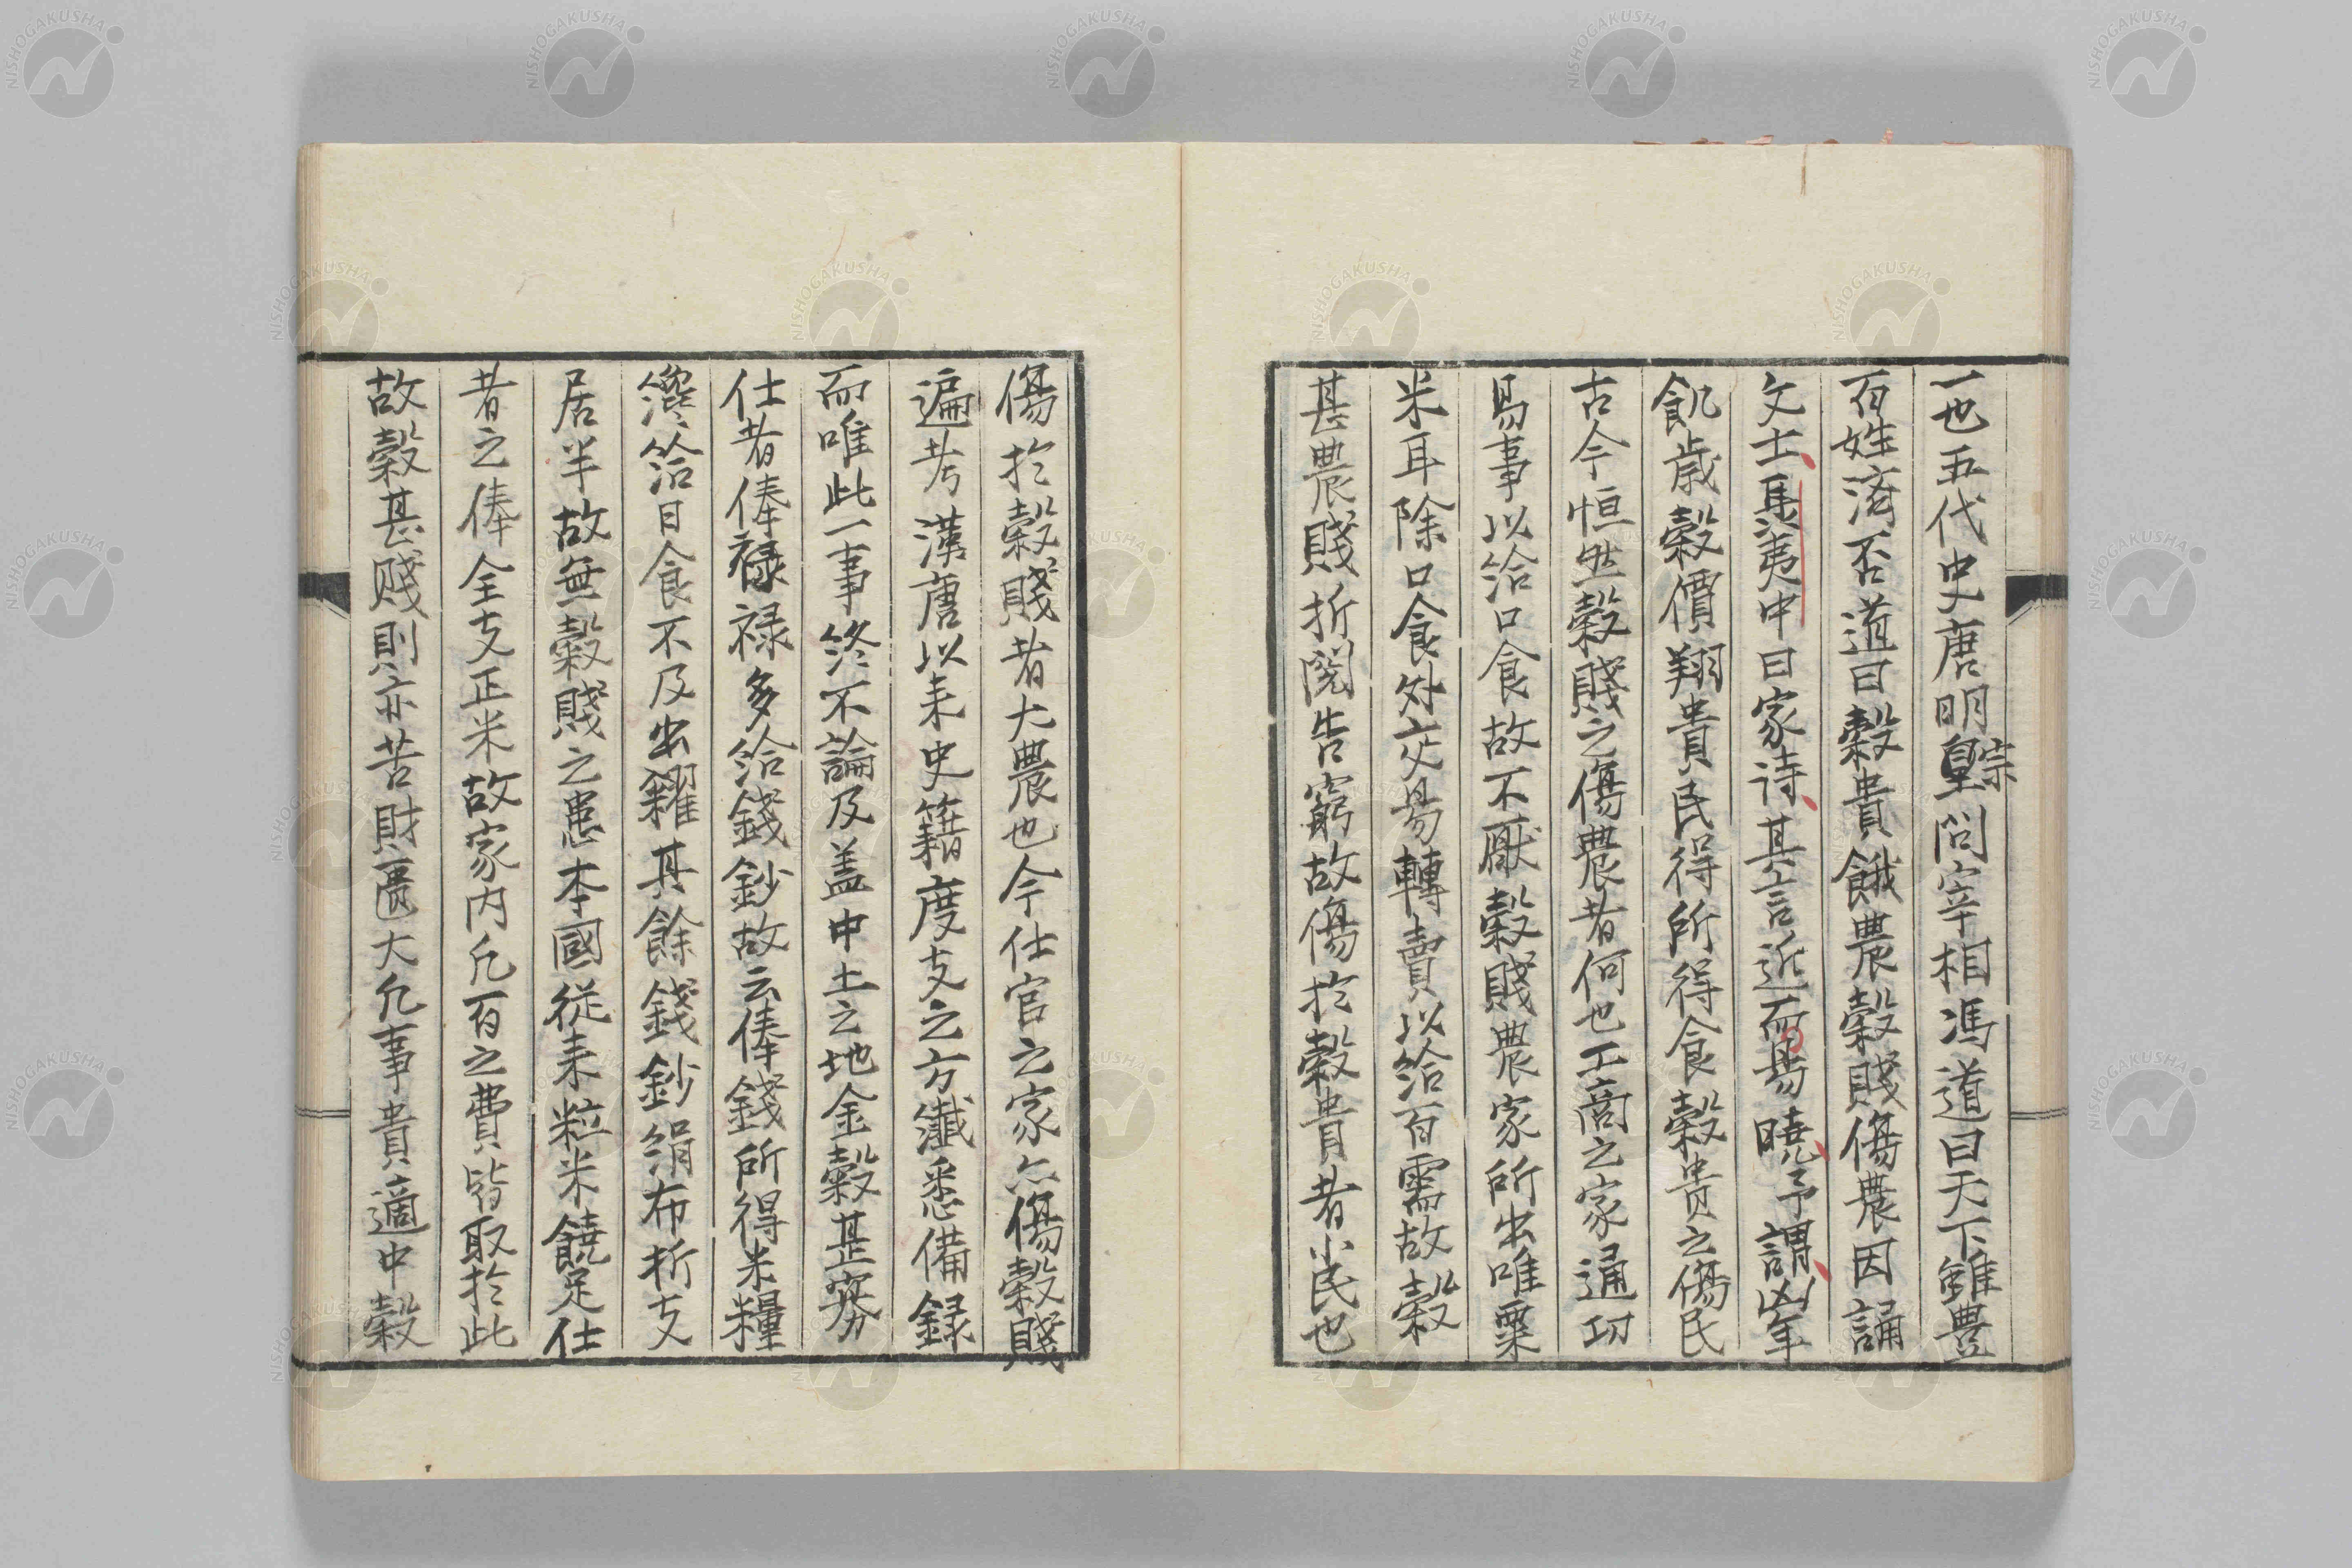 一也五代史唐明皇宗問宰相馮道曰天下雖豊
百姓済否道曰穀貴餓農穀賤傷農因誦
文士聶夷中曰家詩其言近而易曉予謂凶年
飢歳穀價翔貴民得所得食穀貴之傷民
古今恒然穀賤之傷農者何也工商之家通功
易事以給口食故不厭穀賤農家所出唯粟
米耳除口食外交易轉賣以給百需故穀
甚農賤折閲告窮故傷於穀貴者小民也
傷於穀賤者大農也今仕官之家亦傷穀賤
遍考漢唐以来史籍度支之方纖悉備録
而唯此一事終不論及盖中土之地金穀甚夥
仕者俸禄禄多給錢鈔故云俸錢所得米糧
纔給日食不及出糶其餘錢鈔絹布折支
居半故無穀賤之患本國従来粒米饒足仕
者之俸全支正米故家内凢百之費皆取於此
故穀甚賤則亦苦財匱大凢事貴適中穀
NISHOGAKUSHA